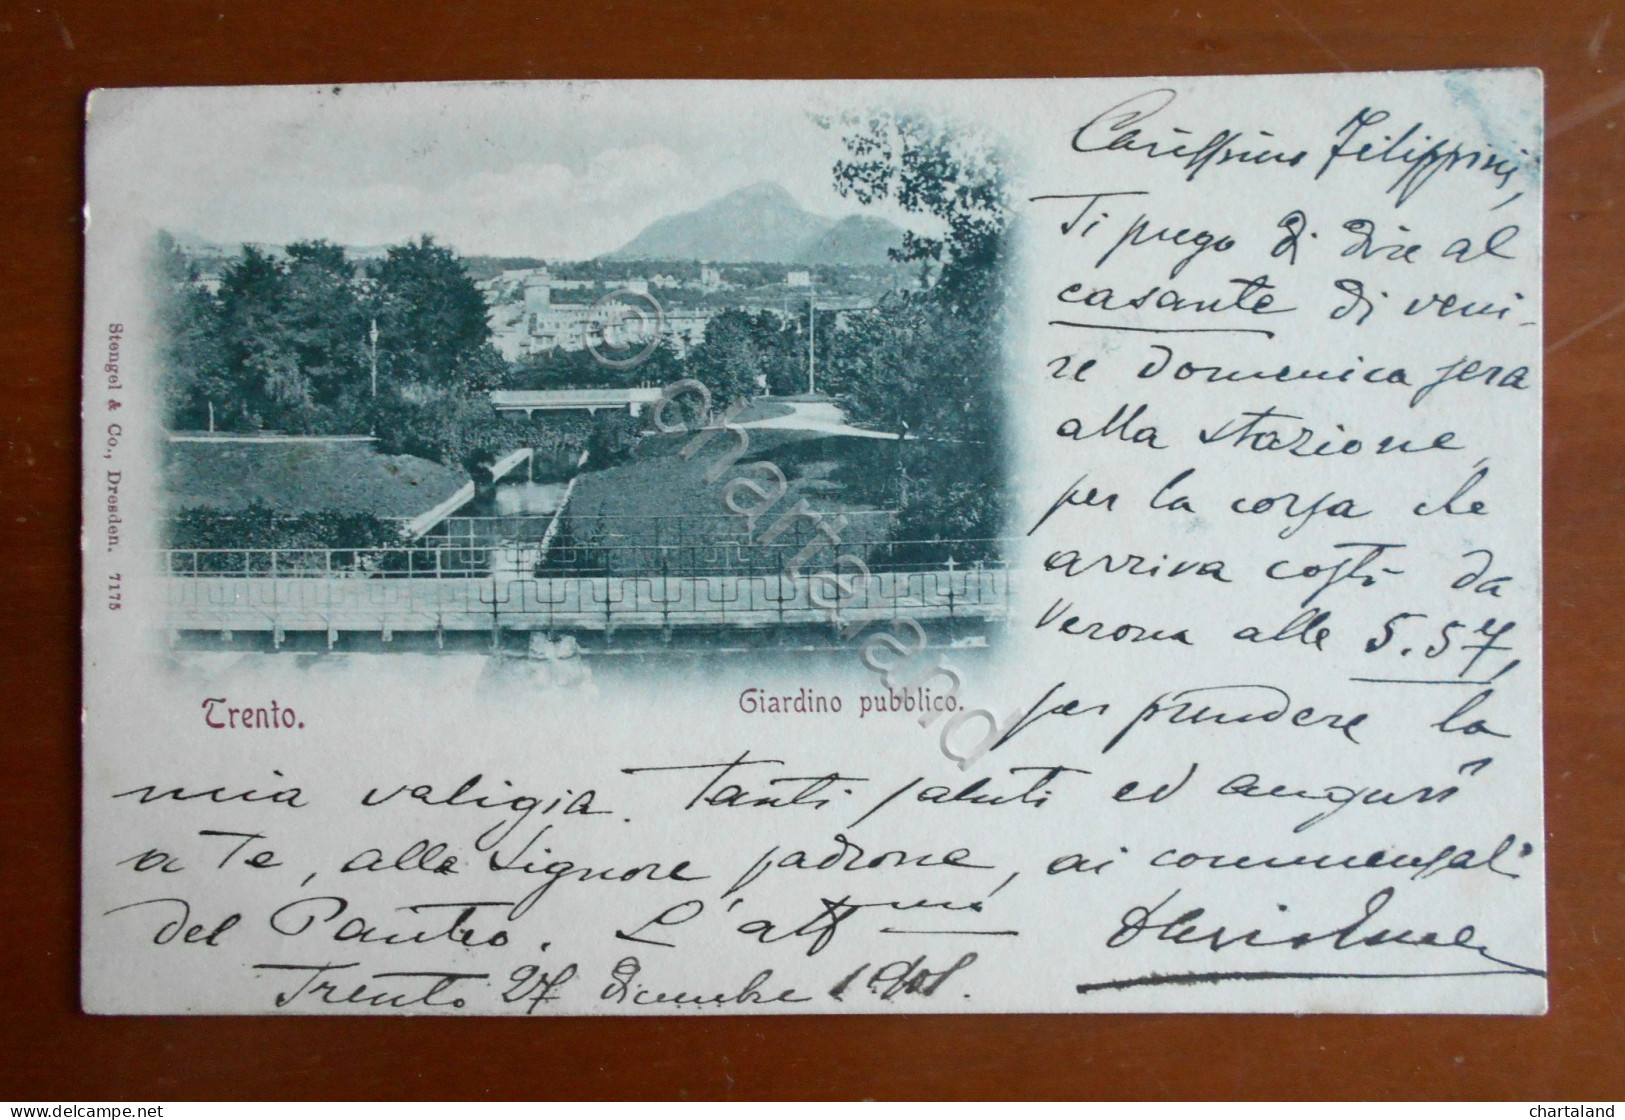 Carissimo Filippini,
Ti prego di dire al
casante di veni-
re domenica sera
alla stazione
per la corsa che
arriva costì da
Verona alle 5.57,
per prendere la
mia valigia. Tanti saluti ed auguri
a Te, alla Signora padrona, ai commensali
del Panteo. L'aff mo
Trento 27 dicembre 1901.
Trento.
Giardino pubblico.
Stengel & Co., Dresden. 7175
© chartaland
delcampe.net
chartaland